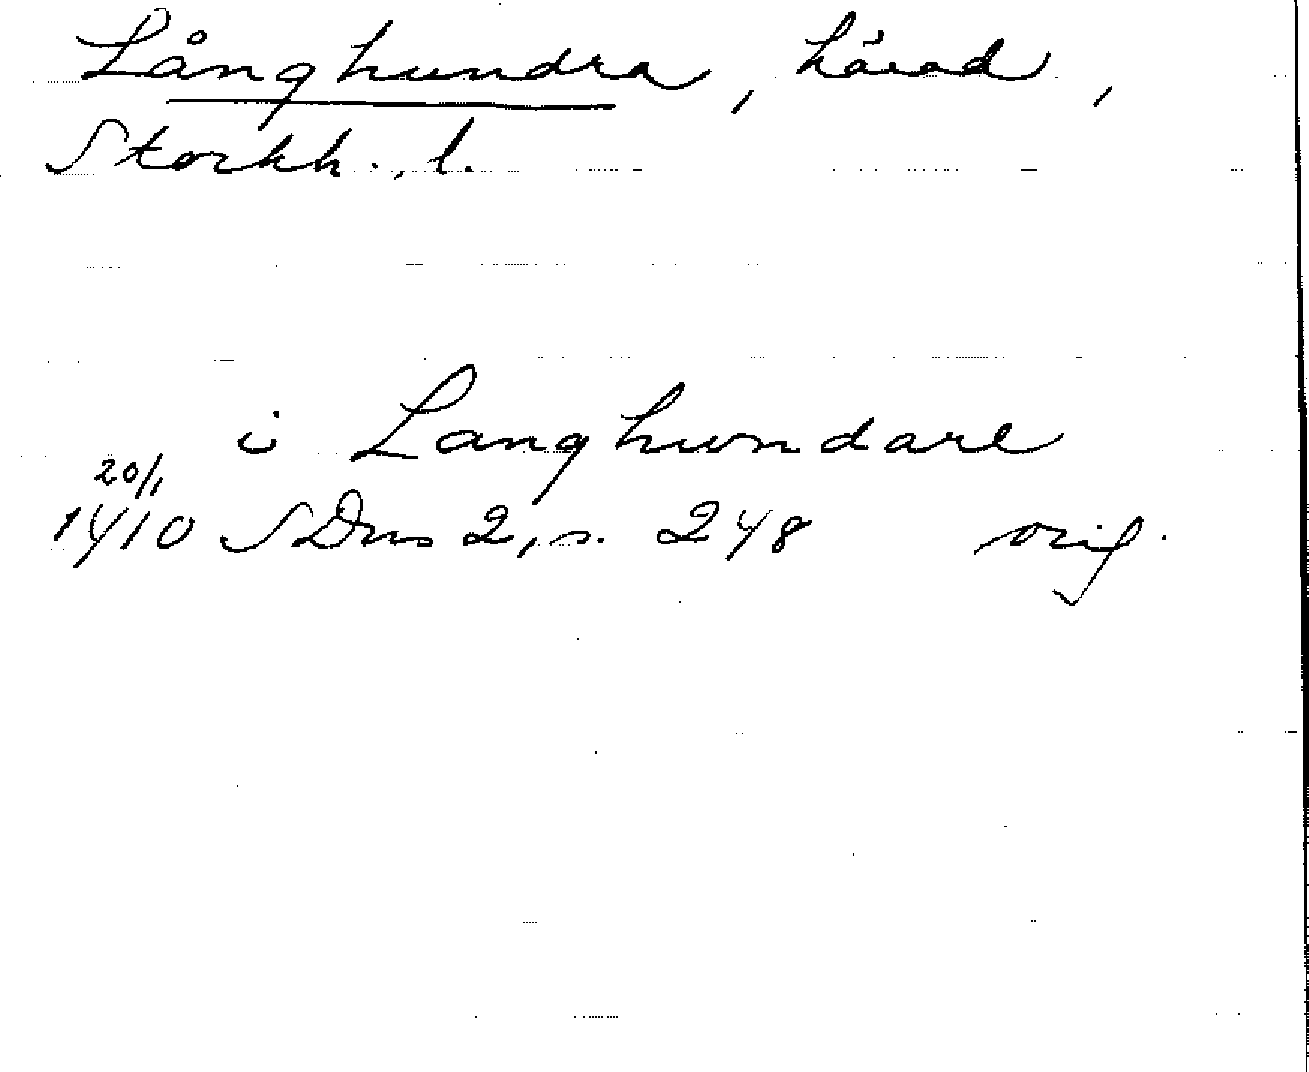 Långhundra, härad,
Stockh., l.
i Langhundare
20/1
1410 SDns 2, s. 248 orig.